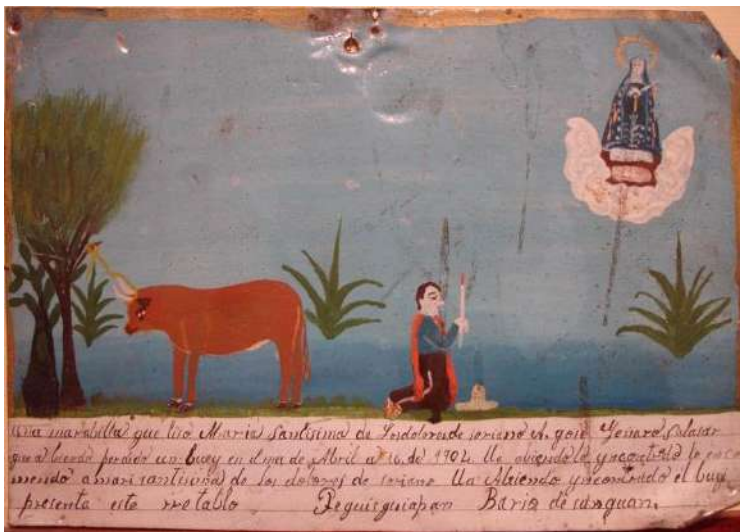 Una marabilla que hiso Maria Santisima de losdolores de soriano A. gose Genaro Salasar
que abiendo perdido un buey en el mes de Abril a 16. de 1902 lla abiendo lo yncontrado lo enco
mendo a mari santisima de los dolores de soriano lla Abiendo yncontrado el buey
presenta este rretablo Peguisguiapan Bario de sanguan.